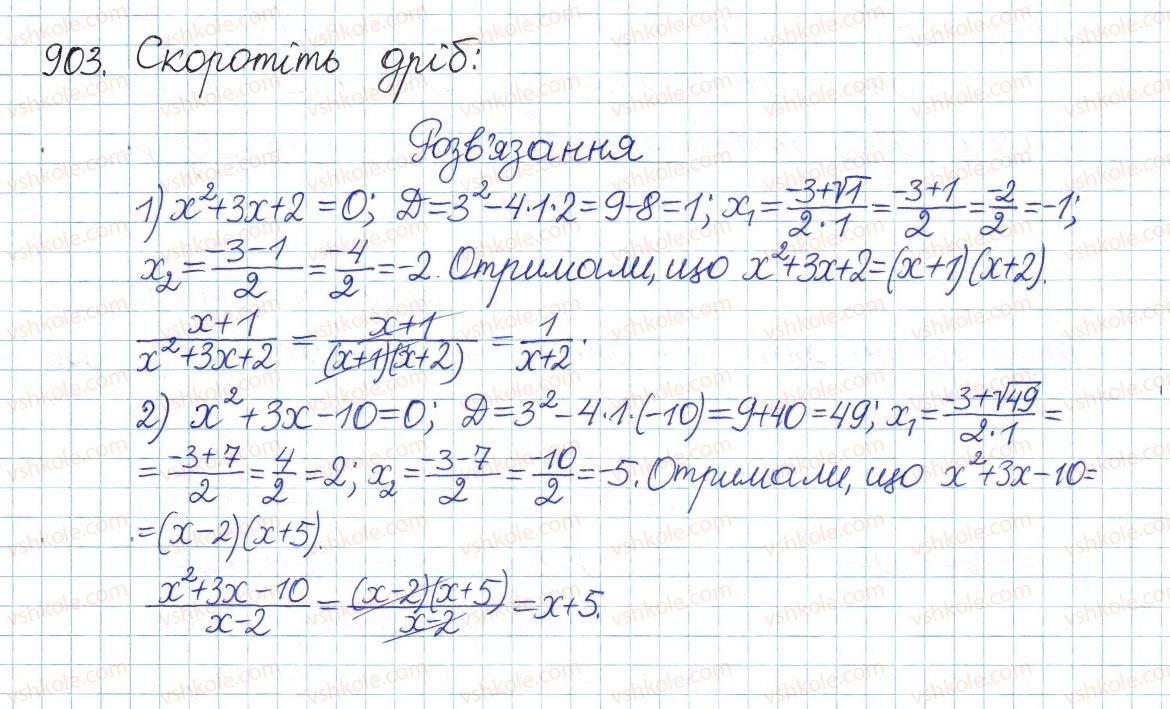 903. Скоротіть дріб:
Розв'язання
1) x²+3x+2=0; Д=3²-4·1·2=9-8=1; x₁=(-3+√1)/(2·1)=(-3+1)/2=-2/2=-1;
x₂=(-3-1)/2=-4/2=-2. Отримали, що x²+3x+2=(x+1)(x+2).
(x+1)/(x²+3x+2)=(x+1)/((x+1)(x+2))=1/(x+2).
2) x²+3x-10=0; Д=3²-4·1·(-10)=9+40=49; x₁=(-3+√49)/(2·1)=
=(-3+7)/2=4/2=2; x₂=(-3-7)/2=-10/2=-5. Отримали, що x²+3x-10=
=(x-2)(x+5).
(x²+3x-10)/(x-2)=((x-2)(x+5))/(x-2)=x+5.
vshkole.com